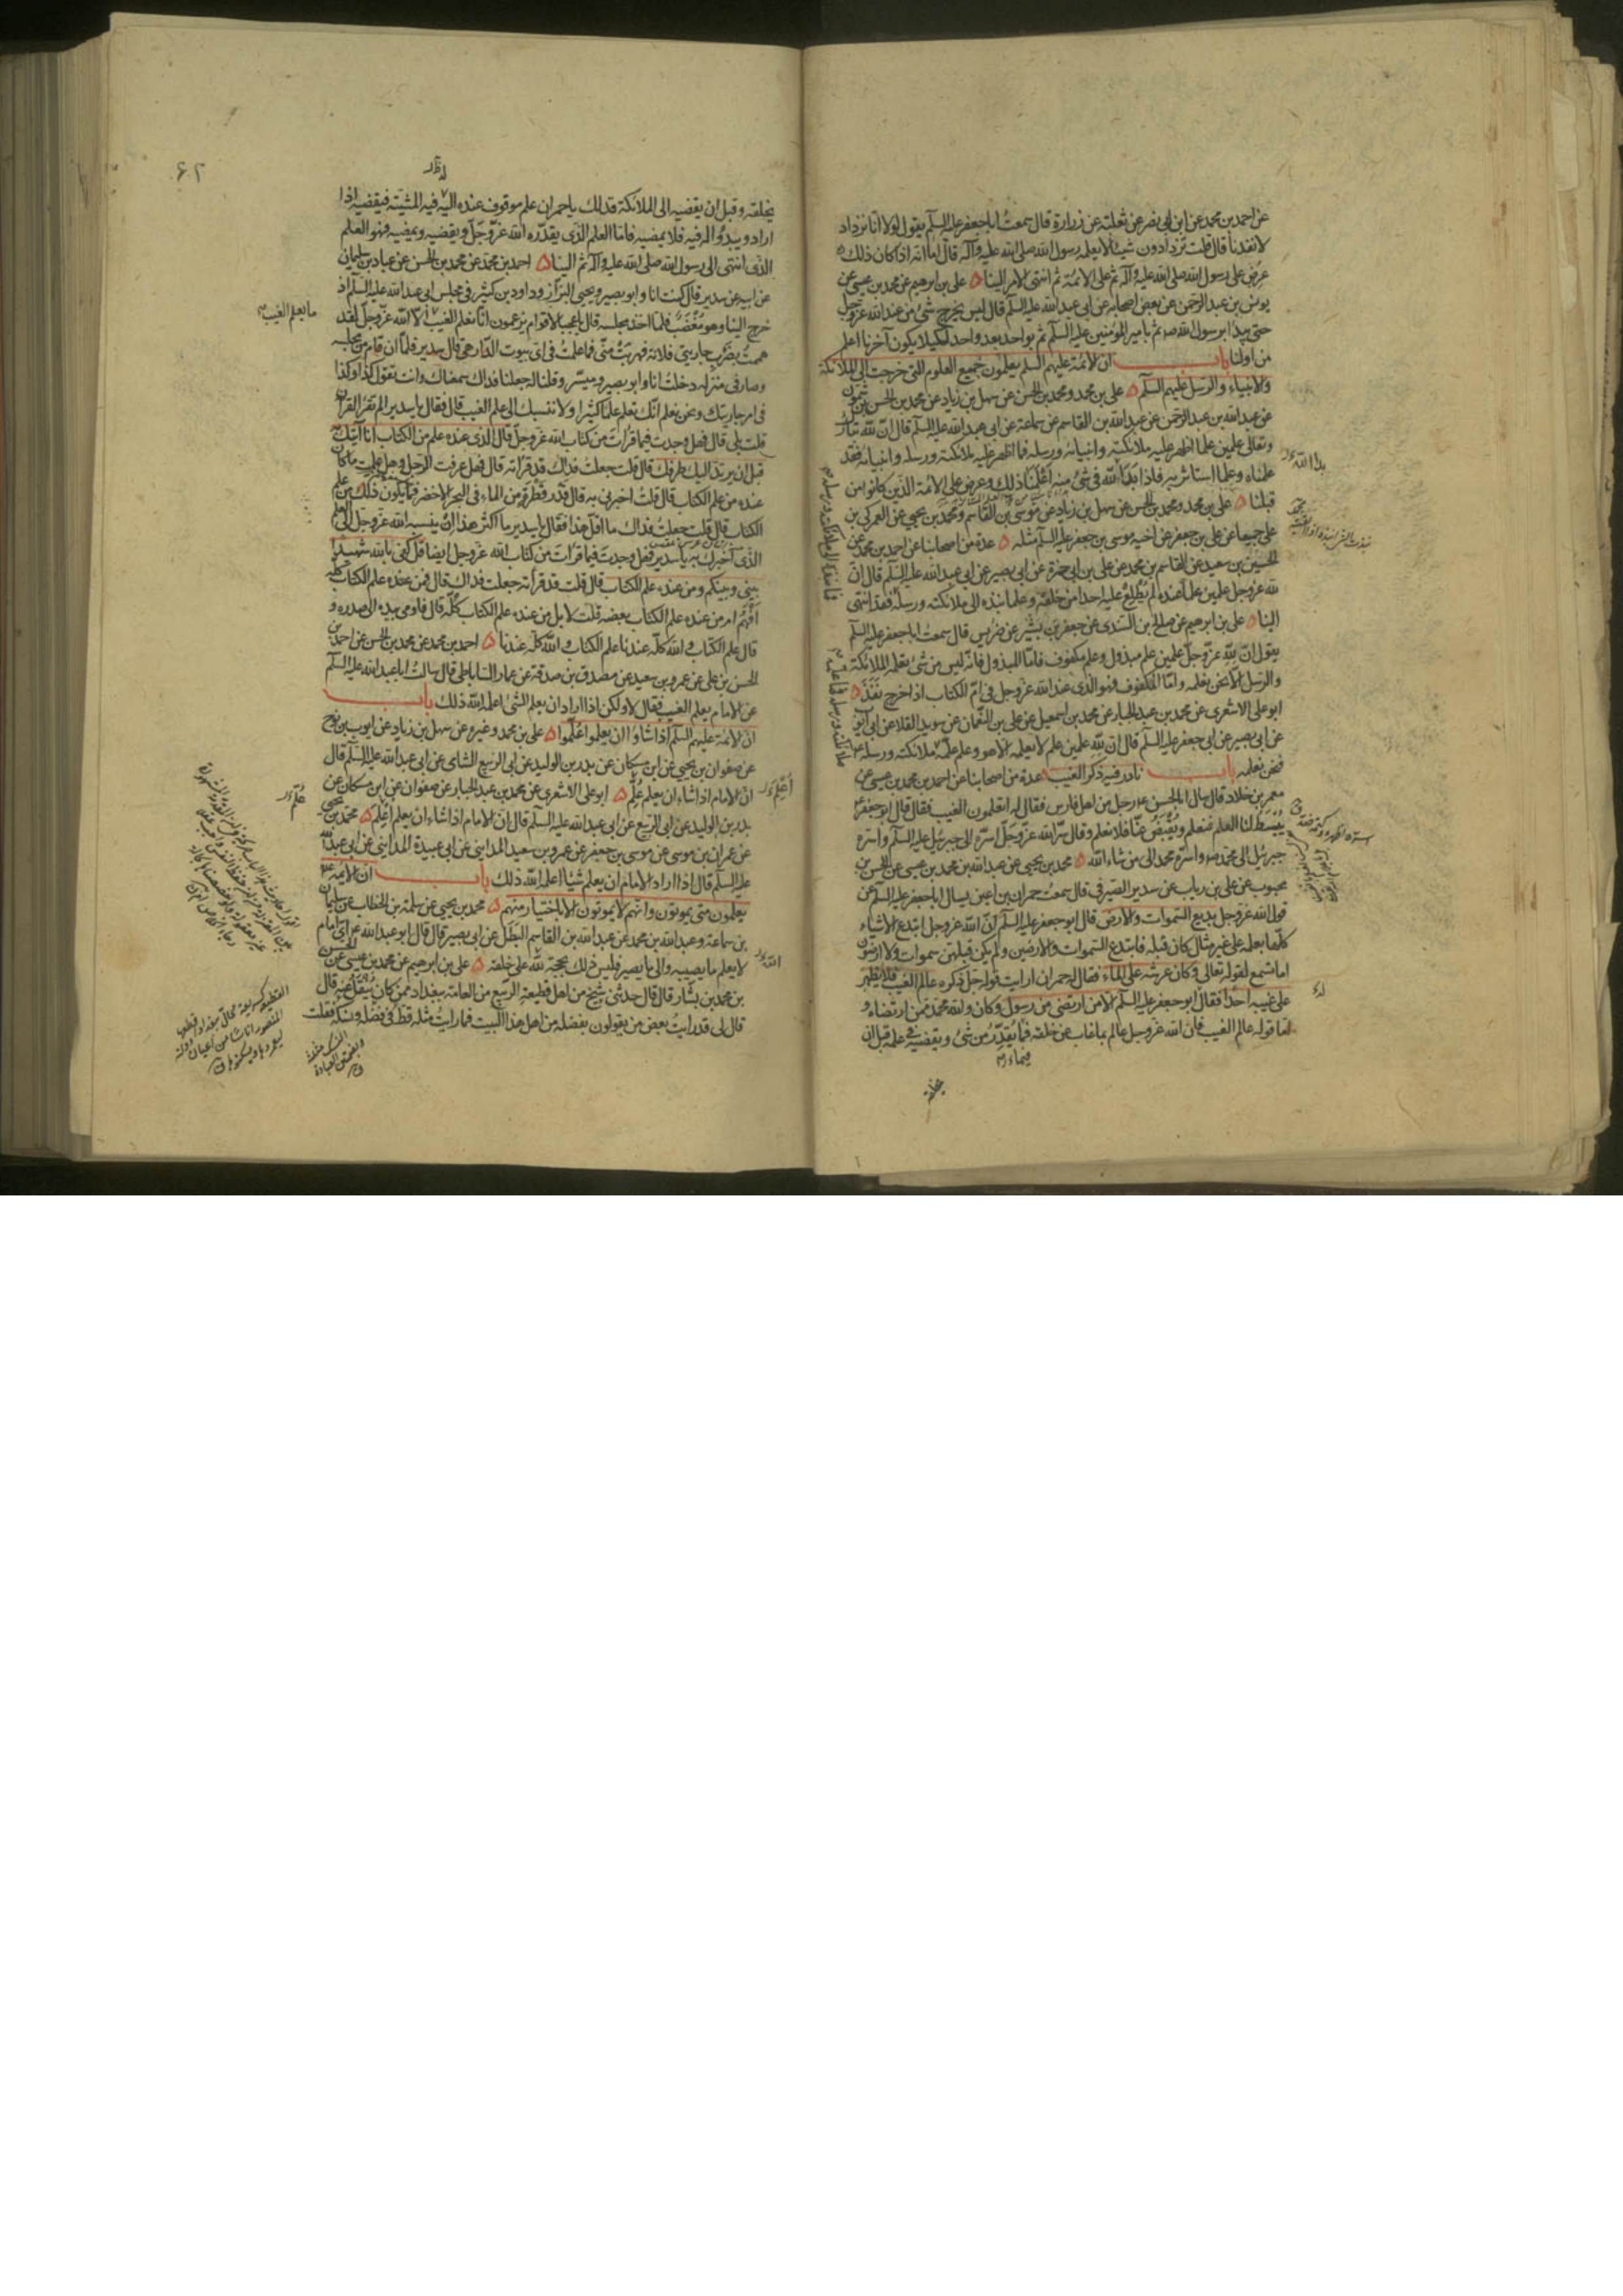 عن احمد بن محمد عن ابن ابى نصر عن ثعلبة عن زرارة قال سمعت اباجعفر عليه السلم يقول لولا انا نزداد
لانفدنا قال قلت تزدادون شيئا لا يعلمه رسول الله صلى الله عليه وآله قال اما انه اذا كان ذلك
عرض على رسول الله صلى الله عليه وآله ثم على الائمة ثم انتهى الامر الينا ه على بن ابرهيم عن محمد بن عيسى عن
يونس بن عبد الرحمن عن بعض اصحابه عن ابى عبد الله عليه السلم قال ليس يخرج شئ من عند الله عز وجل
حتى يبدا برسول الله ص ثم بامير المؤمنين عليه السلم ثم بواحد بعد واحد لكيلا يكون آخرنا اعلم
من اولنا باب ان الائمة عليهم السلم يعلمون جميع العلوم التى خرجت الى الملائكة
والانبياء والرسل عليهم السلم ه على بن محمد ومحمد بن الحسن عن سهل بن زياد عن محمد بن الحسن بن شمون
عن عبد الله بن عبد الرحمن عن عبد الله بن القاسم عن سماعة عن ابى عبد الله عليه السلم قال ان لله تبارك
وتعالى علمين علما اظهر عليه ملائكته وانبيائه ورسله فما اظهر عليه ملائكته ورسله وانبيائه فقد
علمناه وعلما استاثر به فاذا بدا لله فى شئ منه اعلمنا ذلك وعرض على الائمة الذين كانوا من
قبلنا ه على بن محمد ومحمد بن الحسن عن سهل بن زياد عن موسى بن القاسم ومحمد بن يحيى عن العمركى بن
على جميعا عن على بن جعفر عن اخيه موسى بن جعفر عليه السلم مثله ه عدة من اصحابنا عن احمد بن محمد عن
الحسين بن سعيد عن القاسم بن محمد عن على بن ابى حمزة عن ابى بصير عن ابى عبد الله عليه السلم قال ان
لله عز وجل علمين علما عنده لم يطلع عليه احدا من خلقه وعلما نبذه الى ملائكته ورسله فقد انتهى
الينا ه على بن ابرهيم عن صالح بن السندى عن جعفر بن بشير عن ضريس قال سمعت اباجعفر عليه السلم
يقول ان لله عز وجل علمين علم مبذول وعلم مكفوف فاما المبذول فانه ليس من شئ يعلمه الملائكة
والرسل الا نحن نعلمه واما المكفوف فهو الذى عند الله عز وجل فى ام الكتاب اذا خرج نفذ ه
ابو على الاشعرى عن محمد بن عبد الجبار عن محمد بن اسمعيل عن على بن النعمان عن سويد القلا عن ابى ايوب
عن ابى بصير عن ابى جعفر عليه السلم قال ان لله علمين علم لا يعلمه الا هو وعلم علمه ملائكته ورسله
فنحن نعلمه باب نادر فيه ذكر الغيب ه عدة من اصحابنا عن احمد بن محمد بن عيسى عن
معمر بن خلاد قال سال ابا الحسن ع رجل من اهل فارس فقال له اتعلمون الغيب فقال قال ابو جعفر ع
يبسط لنا العلم فنعلم ويقبض عنا فلا نعلم وقال سر الله عز وجل اسره الى جبرئيل عليه السلم واسره
جبرئيل الى محمد ص واسره محمد الى من شاء الله ه محمد بن يحيى عن عبد الله بن محمد بن عيسى عن الحسن بن
محبوب عن على بن رياب عن سدير الصيرفى قال سمعت حمران بن اعين يسال اباجعفر عليه السلم عن
قول الله عز وجل بديع السموات والارض قال ابو جعفر عليه السلم ان الله عز وجل ابتدع الاشياء
كلها بعلمه على غير مثال كان قبله فابتدع السموات والارضين ولم يكن قبلهن سموات ولا ارضون
اما تسمع لقوله تعالى وكان عرشه على الماء فقال له حمران ارايت قوله جل ذكره عالم الغيب فلا يظهر
على غيبه احدا فقال ابو جعفر عليه السلم الا من ارتضى من رسول وكان والله محمد ممن ارتضاه و
اما قوله عالم الغيب فان الله عز وجل عالم بما غاب عن خلقه فما يقدر من شئ ويقضيه فى علمه قبل ان
بدا الله
يخلقه وقبل ان يقضيه الى الملائكة فذلك يا حمران علم موقوف عنده اليه فيه المشية فيقضيه اذا
اراد ويبدو له فيه فلا يمضيه فاما العلم الذى يقدره الله عز وجل ويقضيه ويمضيه فهو العلم
الذى انتهى الى رسول الله صلى الله عليه وآله ثم الينا ه احمد بن محمد عن محمد بن الحسن عن عباد بن سليمان
عن ابيه عن سدير قال كنت انا وابو بصير ويحيى البزاز وداود بن كثير فى مجلس ابى عبد الله عليه السلم اذ
خرج الينا وهو مغضب فلما اخذ مجلسه قال يا عجبا لاقوام يزعمون انا نعلم الغيب الا الله عز وجل لقد
هممت بضرب جاريتى فلانة فهربت منى فما علمت فى اى بيوت الدار هى قال سدير فلما ان قام من مجلسه
وصار فى منزله دخلت انا وابو بصير وميسر وقلنا له جعلنا فداك سمعناك وانت تقول كذا وكذا
فى امر جاريتك ونحن نعلم انك تعلم علما كثيرا ولا ننسبك الى علم الغيب قال فقال يا سدير الم تقرا القران
قلت بلى قال فهل وجدت فيما قرات من كتاب الله عز وجل قال الذى عنده علم من الكتاب انا آتيك به
قبل ان يرتد اليك طرفك قال قلت جعلت فداك قد قراته قال فهل عرفت الرجل وهل علمت ما كان
عنده من علم الكتاب قال قلت اخبرنى به قال قدر قطرة من الماء فى البحر الاخضر فما يكون ذلك من علم
الكتاب قال قلت جعلت فداك ما اقل هذا فقال يا سدير ما اكثر هذا ان ينسبه الله عز وجل الى العلم
الذى اخبرك به يا سدير فهل وجدت فيما قرات من كتاب الله عز وجل ايضا قل كفى بالله شهيدا
بينى وبينكم ومن عنده علم الكتاب قال قلت قد قراته جعلت فداك قال فمن عنده علم الكتاب كله
افهم ام من عنده علم الكتاب بعضه قلت لا بل من عنده علم الكتاب كله قال فاومى بيده الى صدره و
قال علم الكتاب والله كله عندنا علم الكتاب والله كله عندنا ه احمد بن محمد عن محمد بن الحسن عن احمد بن
الحسن بن على عن عمرو بن سعيد عن مصدق بن صدقة عن عمار الساباطى قال سالت اباعبد الله عليه السلم
عن الامام يعلم الغيب فقال لا ولكن اذا اراد ان يعلم الشئ اعلمه الله ذلك باب
ان الائمة عليهم السلم اذا شاؤا ان يعلموا علموا ه على بن محمد وغيره عن سهل بن زياد عن ايوب بن نوح
عن صفوان بن يحيى عن ابن مسكان عن بدر بن الوليد عن ابى الربيع الشامى عن ابى عبد الله عليه السلم قال
ان الامام اذا شاء ان يعلم علم ه ابو على الاشعرى عن محمد بن عبد الجبار عن صفوان عن ابن مسكان عن
بدر بن الوليد عن ابى الربيع عن ابى عبد الله عليه السلم قال ان الامام اذا شاء ان يعلم اعلم ه محمد بن يحيى
عن عمران بن موسى عن موسى بن جعفر عن عمرو بن سعيد المداينى عن ابى عبيدة المداينى عن ابى عبد الله
عليه السلم قال اذا اراد الامام ان يعلم شيئا اعلمه الله ذلك باب ان الائمة ع
يعلمون متى يموتون وانهم لا يموتون الا باختيار منهم ه محمد بن يحيى عن سلمة بن الخطاب عن سليمان
بن سماعة وعبد الله بن محمد عن عبد الله بن القاسم البطل عن ابى بصير قال قال ابو عبد الله ع اى امام
لا يعلم ما يصيبه والى ما يصير فليس ذلك بحجة لله على خلقه ه على بن ابرهيم عن محمد بن عيسى عن الحسن
بن محمد بن بشار قال قال حدثنى شيخ من اهل قطيعة الربيع من العامة ببغداد ممن كان ينقل عنه قال
قال لى قد رايت بعض من يقولون بفضله من اهل هذا البيت فما رايت مثله قط فى فضله ونسكه فقلت
ما يعلم الغيب
٦٢